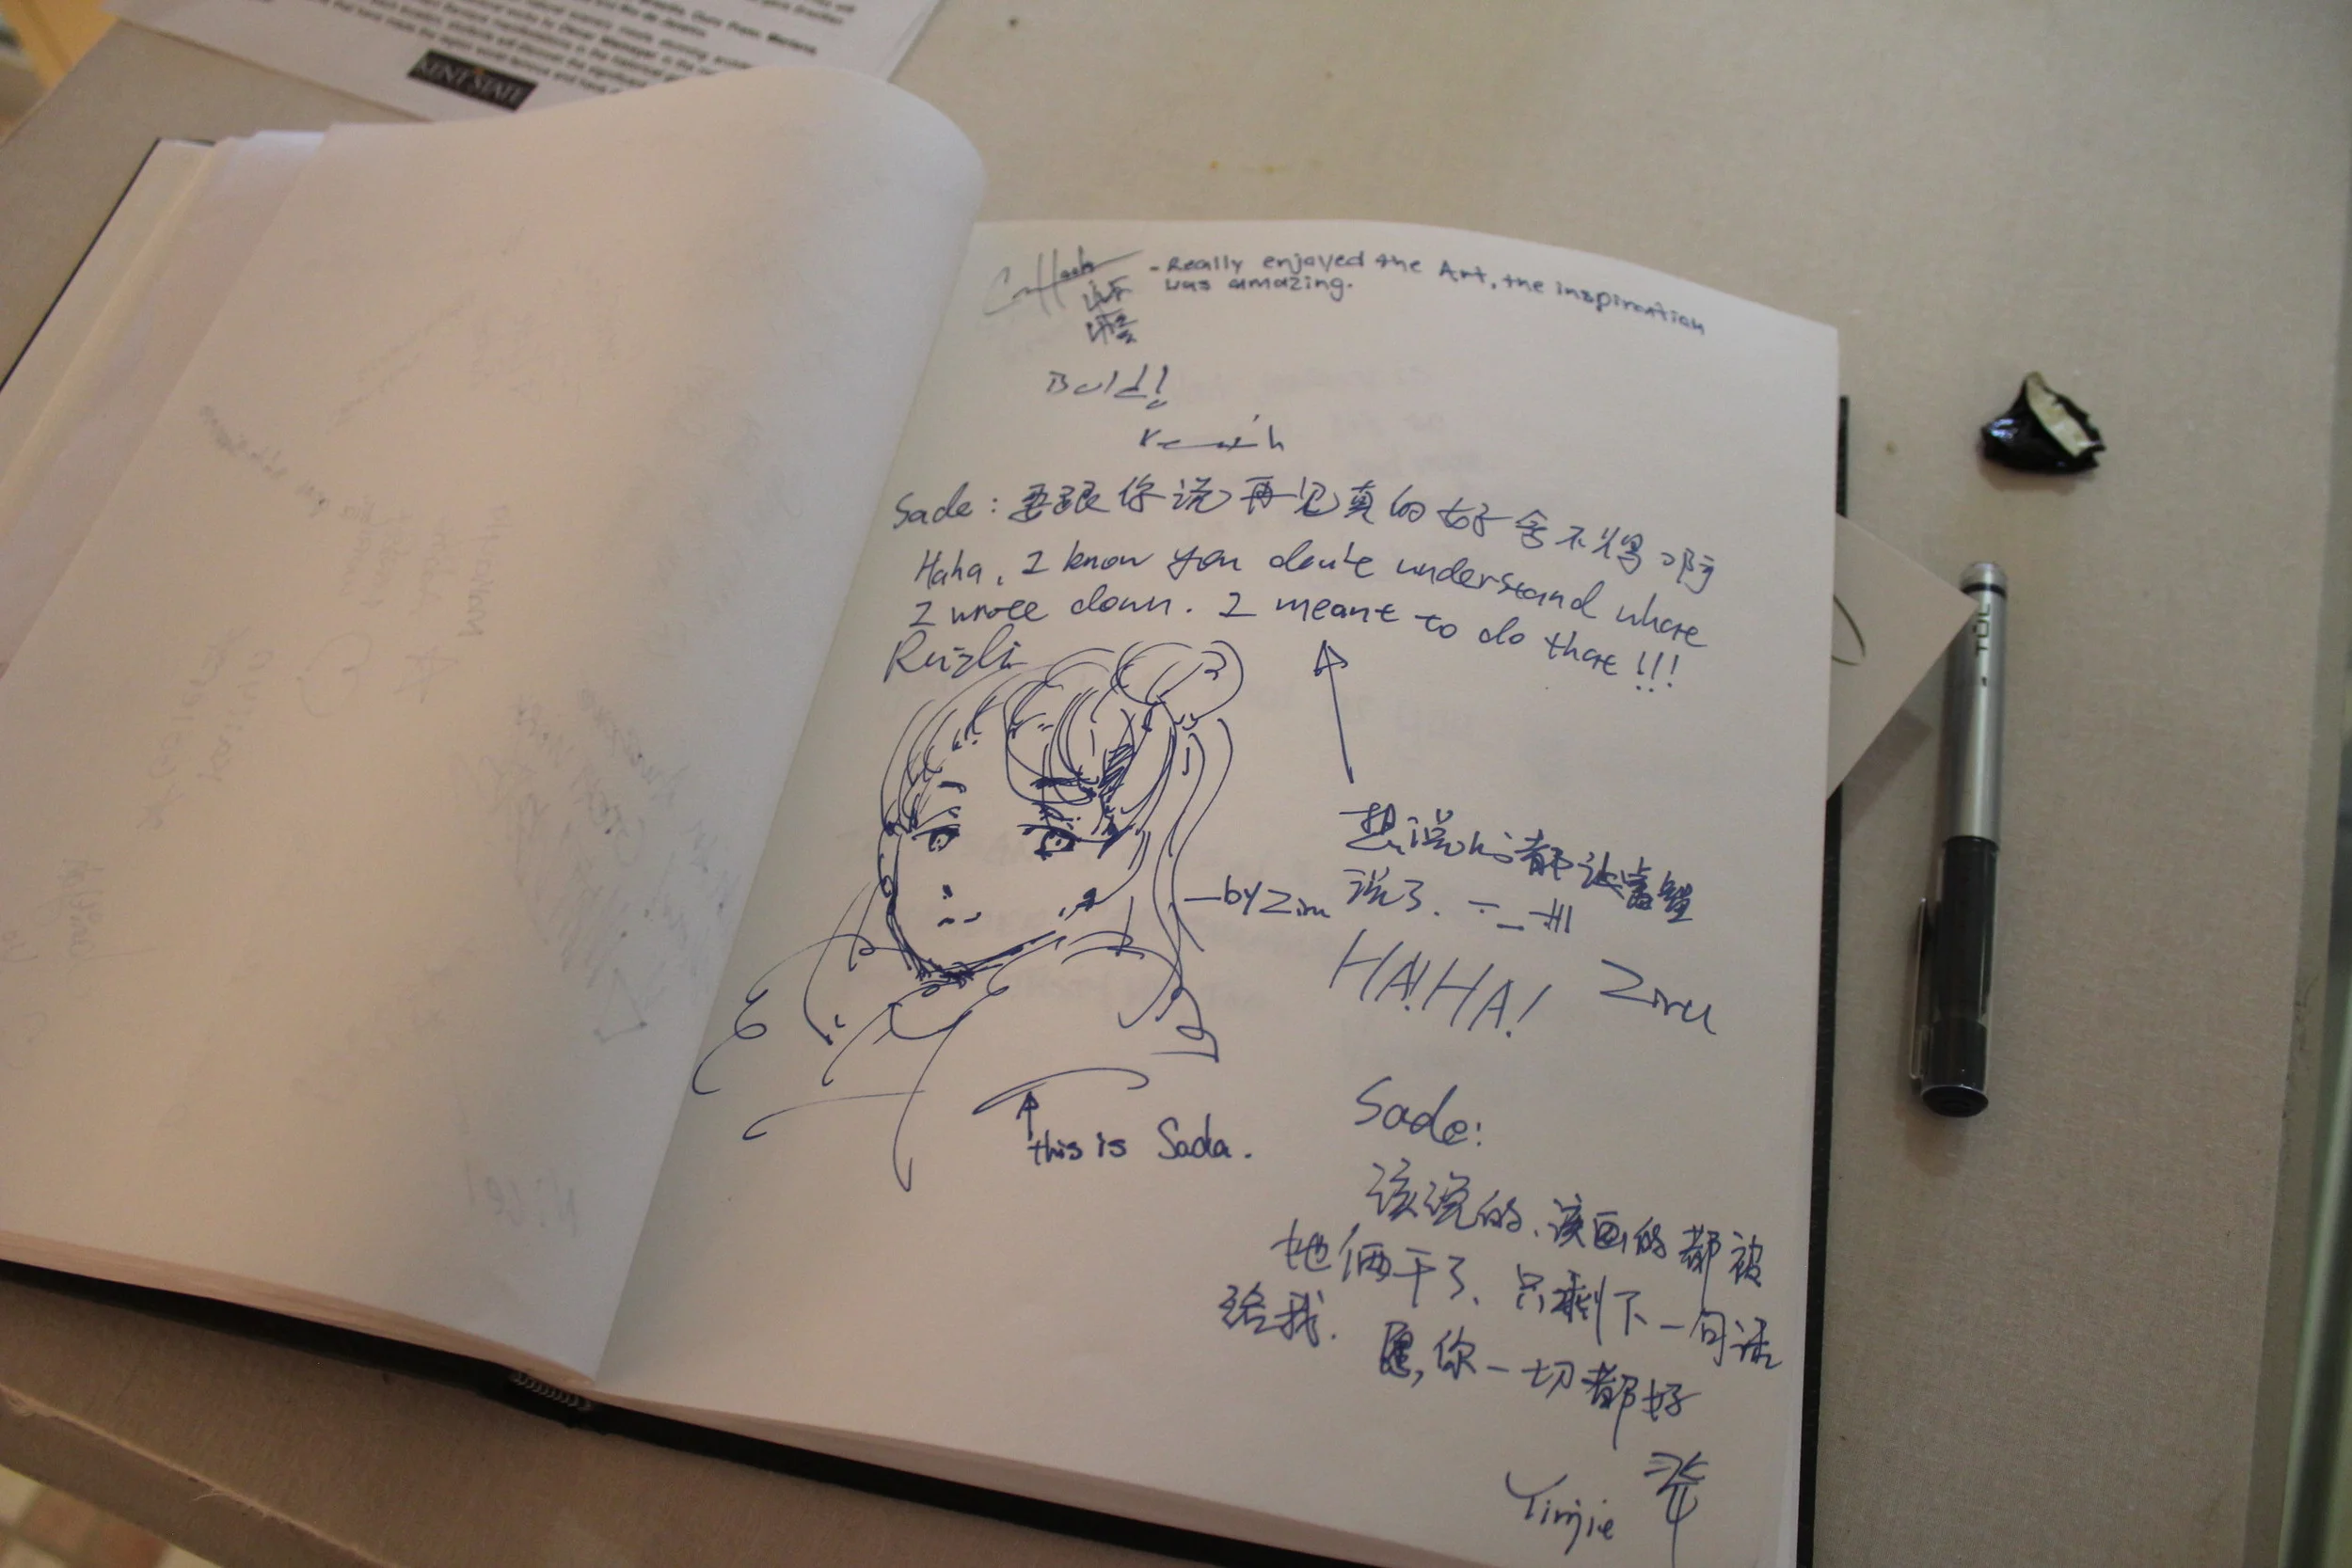 KENT STATE
- Really enjoyed the Art, the inspiration
was amazing.
Bold!
Sade: 要跟你说再见真的好舍不得啊
Haha, I know you don't understand whare
I wrote down. I meant to do thare!!!
Ruizhi
想说的都让富繼
说了. 
—by Ziru
HA! HA! Ziru
this is Sada.
Sade:
该说的、该画的都被
她俩干了、只剩下一句话
给我.
愿,你一切都好
Yinjie
TUL